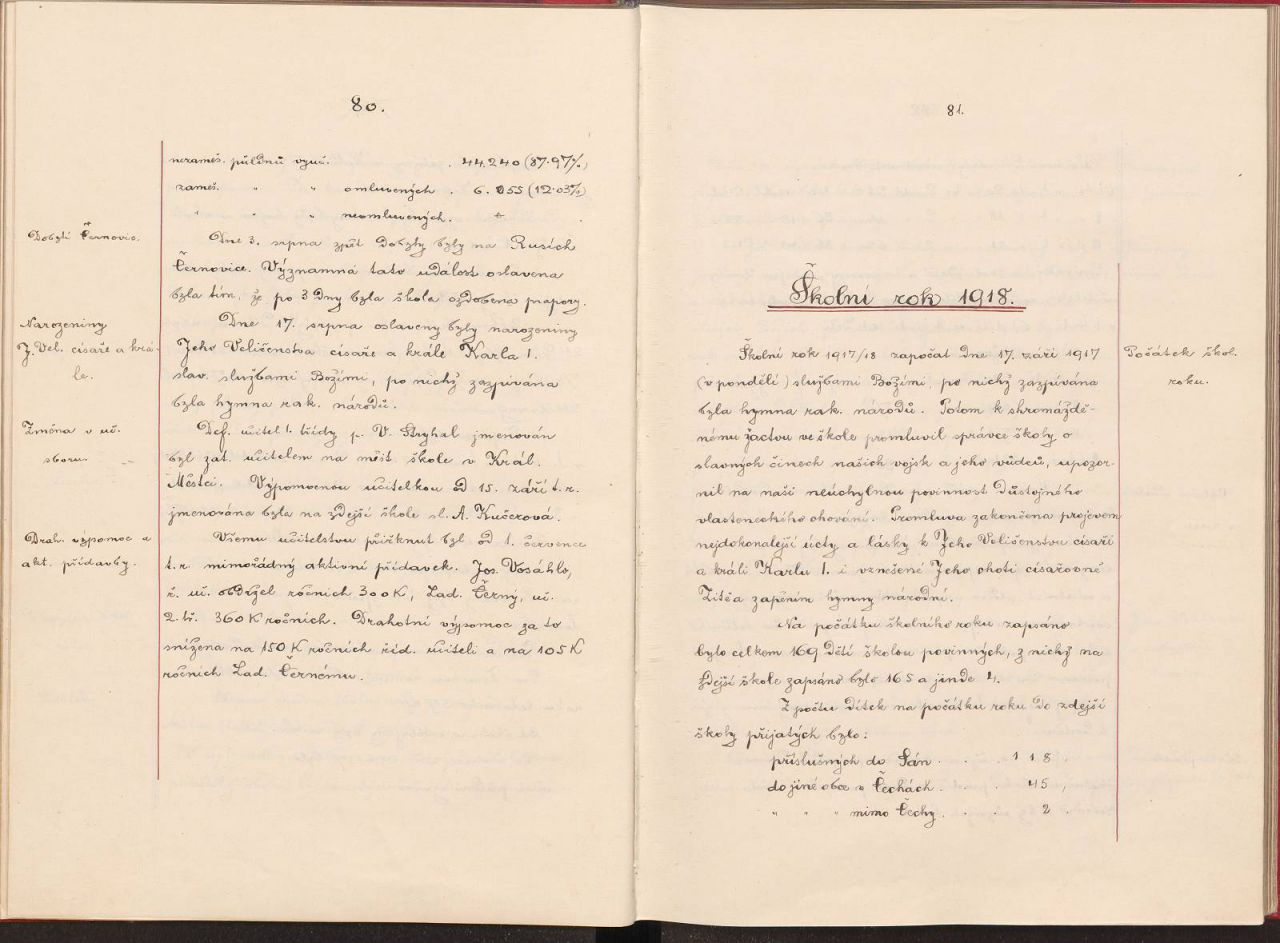 80.
nezameš. půldnů vyuč. . 44.240 (87.97%)
zameš. " " omluvených . 6.055 (12.03%)
" " " neomluvených.
Dobytí Černovic.
Dne 3. srpna zpět dobyty byly na Rusích
Černovice. Významná tato událost oslavena
byla tím, že po 3 dny byla škola ozdobena prapory.
Narozeniny
J. Vel. císaře a krá-
le.
Dne 17. srpna oslaveny byly narozeniny
Jeho Veličenstva císaře a krále Karla I.
slav. službami Božími, po nichž zazpívána
byla hymna rak. národů.
Změna v uč.
sboru.
Def. učitel I. třídy p. V. Stryhal jmenován
byl zat. učitelem na měšť. škole v Král.
Městci. Výpomocnou učitelkou od 15. září t. r.
jmenována byla na zdejší škole sl. A. Kučerová.
Drah. výpomoc a
akt. přídavky.
Všemu učitelstvu přiřknut byl od 1. července
t. r. mimořádný aktivní přídavek. Jos. Vosáhlo,
ř. uč. obdržel ročních 300 K, Lad. Černý, uč.
2. tř. 360 K ročních. Drahotní výpomoc za to
snížena na 150 K ročních říd. učiteli a na 105 K
ročních Lad. Černému.
81.
Školní rok 1918.
Počátek škol.
roku.
Školní rok 1917/18 započat dne 17. září 1917
(v pondělí) službami Božími, po nichž zazpívána
byla hymna rak. národů. Potom k shromáždě-
nému žactvu ve škole promluvil správce školy o
slavných činech našich vojsk a jeho vůdců, upozor-
nil na naši neúchylnou povinnost důstojného
vlasteneckého chování. Promluva zakončena projevem
nejdokonalejší úcty a lásky k Jeho Veličenstvu císaři
a králi Karlu I. i vznešené Jeho choti císařovně
Zitě a zapěním hymny národní.
Na počátku školního roku zapsáno
bylo celkem 169 dětí školou povinných, z nichž na
zdejší škole zapsáno bylo 165 a jinde 4.
Z počtu dítek na počátku roku do zdejší
školy přijatých bylo:
příslušných do Sán . . 118.
do jiné obce v Čechách . . 45,
" " " mimo Čechy . . 2.